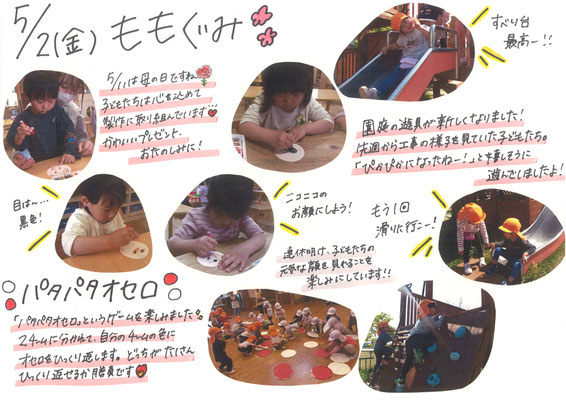 5/2(金) ももぐみ
5/11は母の日ですね
子どもたちは心を込めて
製作に取り組んでいます…
かわいいプレゼント
おたのしみに!
すべり台
最高ー!!
園庭の遊具が新しくなりました!
先週から工事の様子を見ていた子どもたち。
「ぴかぴかになったねー!」と嬉しそうに
遊んでしましたよ!
目は〜…
黒色!
ニコニコの
お顔にしよう!
もう1回
滑りに行こー!
連休明け、子どもたちの
元気な顔を見れることを
楽しみにしています!!
パタパタオセロ
「パタパタオセロ」というゲームを楽しみました
2チームに分かれて、自分のチームの色に
オセロをひっくり返します。どっちがたくさん
ひっくり返せるか勝負です